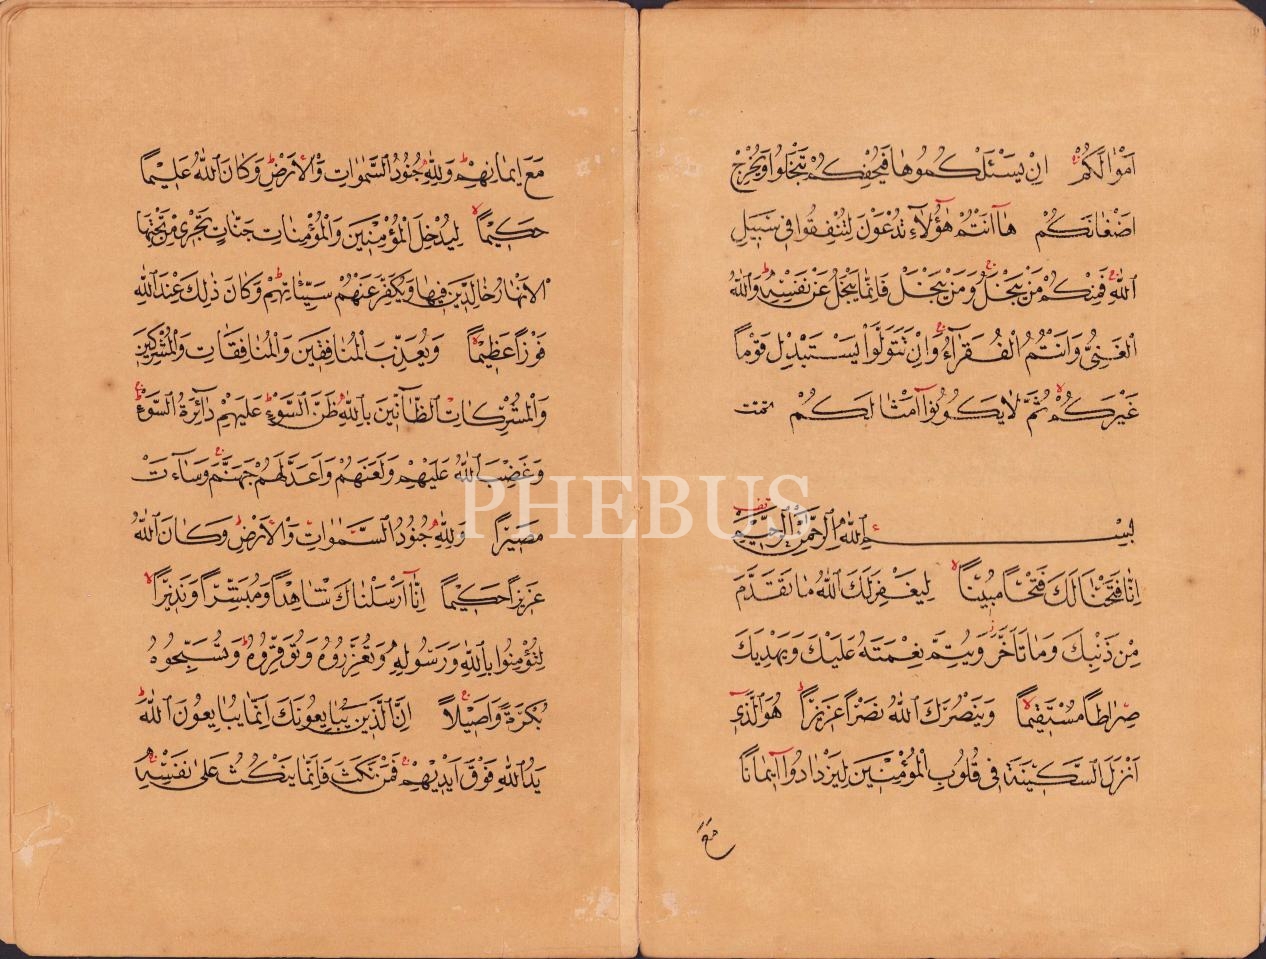 اَمْوَالَكُمْ اِنْ يَسْئَلْكُمُوهَا فَيُحْفِكُمْ تَبْخَلُوا وَيُخْرِجْ
اَضْغَانَكُمْ هَا اَنْتُمْ هٰؤُلَاءِ تُدْعَوْنَ لِتُنْفِقُوا فِى سَبِيلِ
اللّٰهِ فَمِنْكُمْ مَنْ يَبْخَلُ وَمَنْ يَبْخَلْ فَاِنَّمَا يَبْخَلُ عَنْ نَفْسِهِ وَاللّٰهُ
الْغَنِىُّ وَاَنْتُمُ الْفُقَرَاءُ وَاِنْ تَتَوَلَّوْا يَسْتَبْدِلْ قَوْمًا
غَيْرَكُمْ ثُمَّ لَا يَكُونُوا اَمْثَالَكُمْ تمت
بِسْمِ اللّٰهِ الرَّحْمٰنِ الرَّحِيمِ
اِنَّا فَتَحْنَا لَكَ فَتْحًا مُبِينًا لِيَغْفِرَ لَكَ اللّٰهُ مَا تَقَدَّمَ
مِنْ ذَنْبِكَ وَمَا تَاَخَّرَ وَيُتِمَّ نِعْمَتَهُ عَلَيْكَ وَيَهْدِيَكَ
صِرَاطًا مُسْتَقِيمًا وَيَنْصُرَكَ اللّٰهُ نَصْرًا عَزِيزًا هُوَ الَّذِى
اَنْزَلَ السَّكِينَةَ فِى قُلُوبِ الْمُؤْمِنِينَ لِيَزْدَادُوا اِيمَانًا
مَعَ
مَعَ اِيمَانِهِمْ وَلِلّٰهِ جُنُودُ السَّمٰوَاتِ وَالْاَرْضِ وَكَانَ اللّٰهُ عَلِيمًا
حَكِيمًا لِيُدْخِلَ الْمُؤْمِنِينَ وَالْمُؤْمِنَاتِ جَنَّاتٍ تَجْرِى مِنْ تَحْتِهَا
الْاَنْهَارُ خَالِدِينَ فِيهَا وَيُكَفِّرَ عَنْهُمْ سَيِّئَاتِهِمْ وَكَانَ ذٰلِكَ عِنْدَ اللّٰهِ
فَوْزًا عَظِيمًا وَيُعَذِّبَ الْمُنَافِقِينَ وَالْمُنَافِقَاتِ وَالْمُشْرِكِينَ
وَالْمُشْرِكَاتِ الظَّانِّينَ بِاللّٰهِ ظَنَّ السَّوْءِ عَلَيْهِمْ دَائِرَةُ السَّوْءِ
وَغَضِبَ اللّٰهُ عَلَيْهِمْ وَلَعَنَهُمْ وَاَعَدَّ لَهُمْ جَهَنَّمَ وَسَاءَتْ
مَصِيرًا وَلِلّٰهِ جُنُودُ السَّمٰوَاتِ وَالْاَرْضِ وَكَانَ اللّٰهُ
عَزِيزًا حَكِيمًا اِنَّا اَرْسَلْنَاكَ شَاهِدًا وَمُبَشِّرًا وَنَذِيرًا
لِتُؤْمِنُوا بِاللّٰهِ وَرَسُولِهِ وَتُعَزِّرُوهُ وَتُوَقِّرُوهُ وَتُسَبِّحُوهُ
بُكْرَةً وَاَصِيلًا اِنَّ الَّذِينَ يُبَايِعُونَكَ اِنَّمَا يُبَايِعُونَ اللّٰهَ
يَدُ اللّٰهِ فَوْقَ اَيْدِيهِمْ فَمَنْ نَكَثَ فَاِنَّمَا يَنْكُثُ عَلٰى نَفْسِهِ
PHEBUS